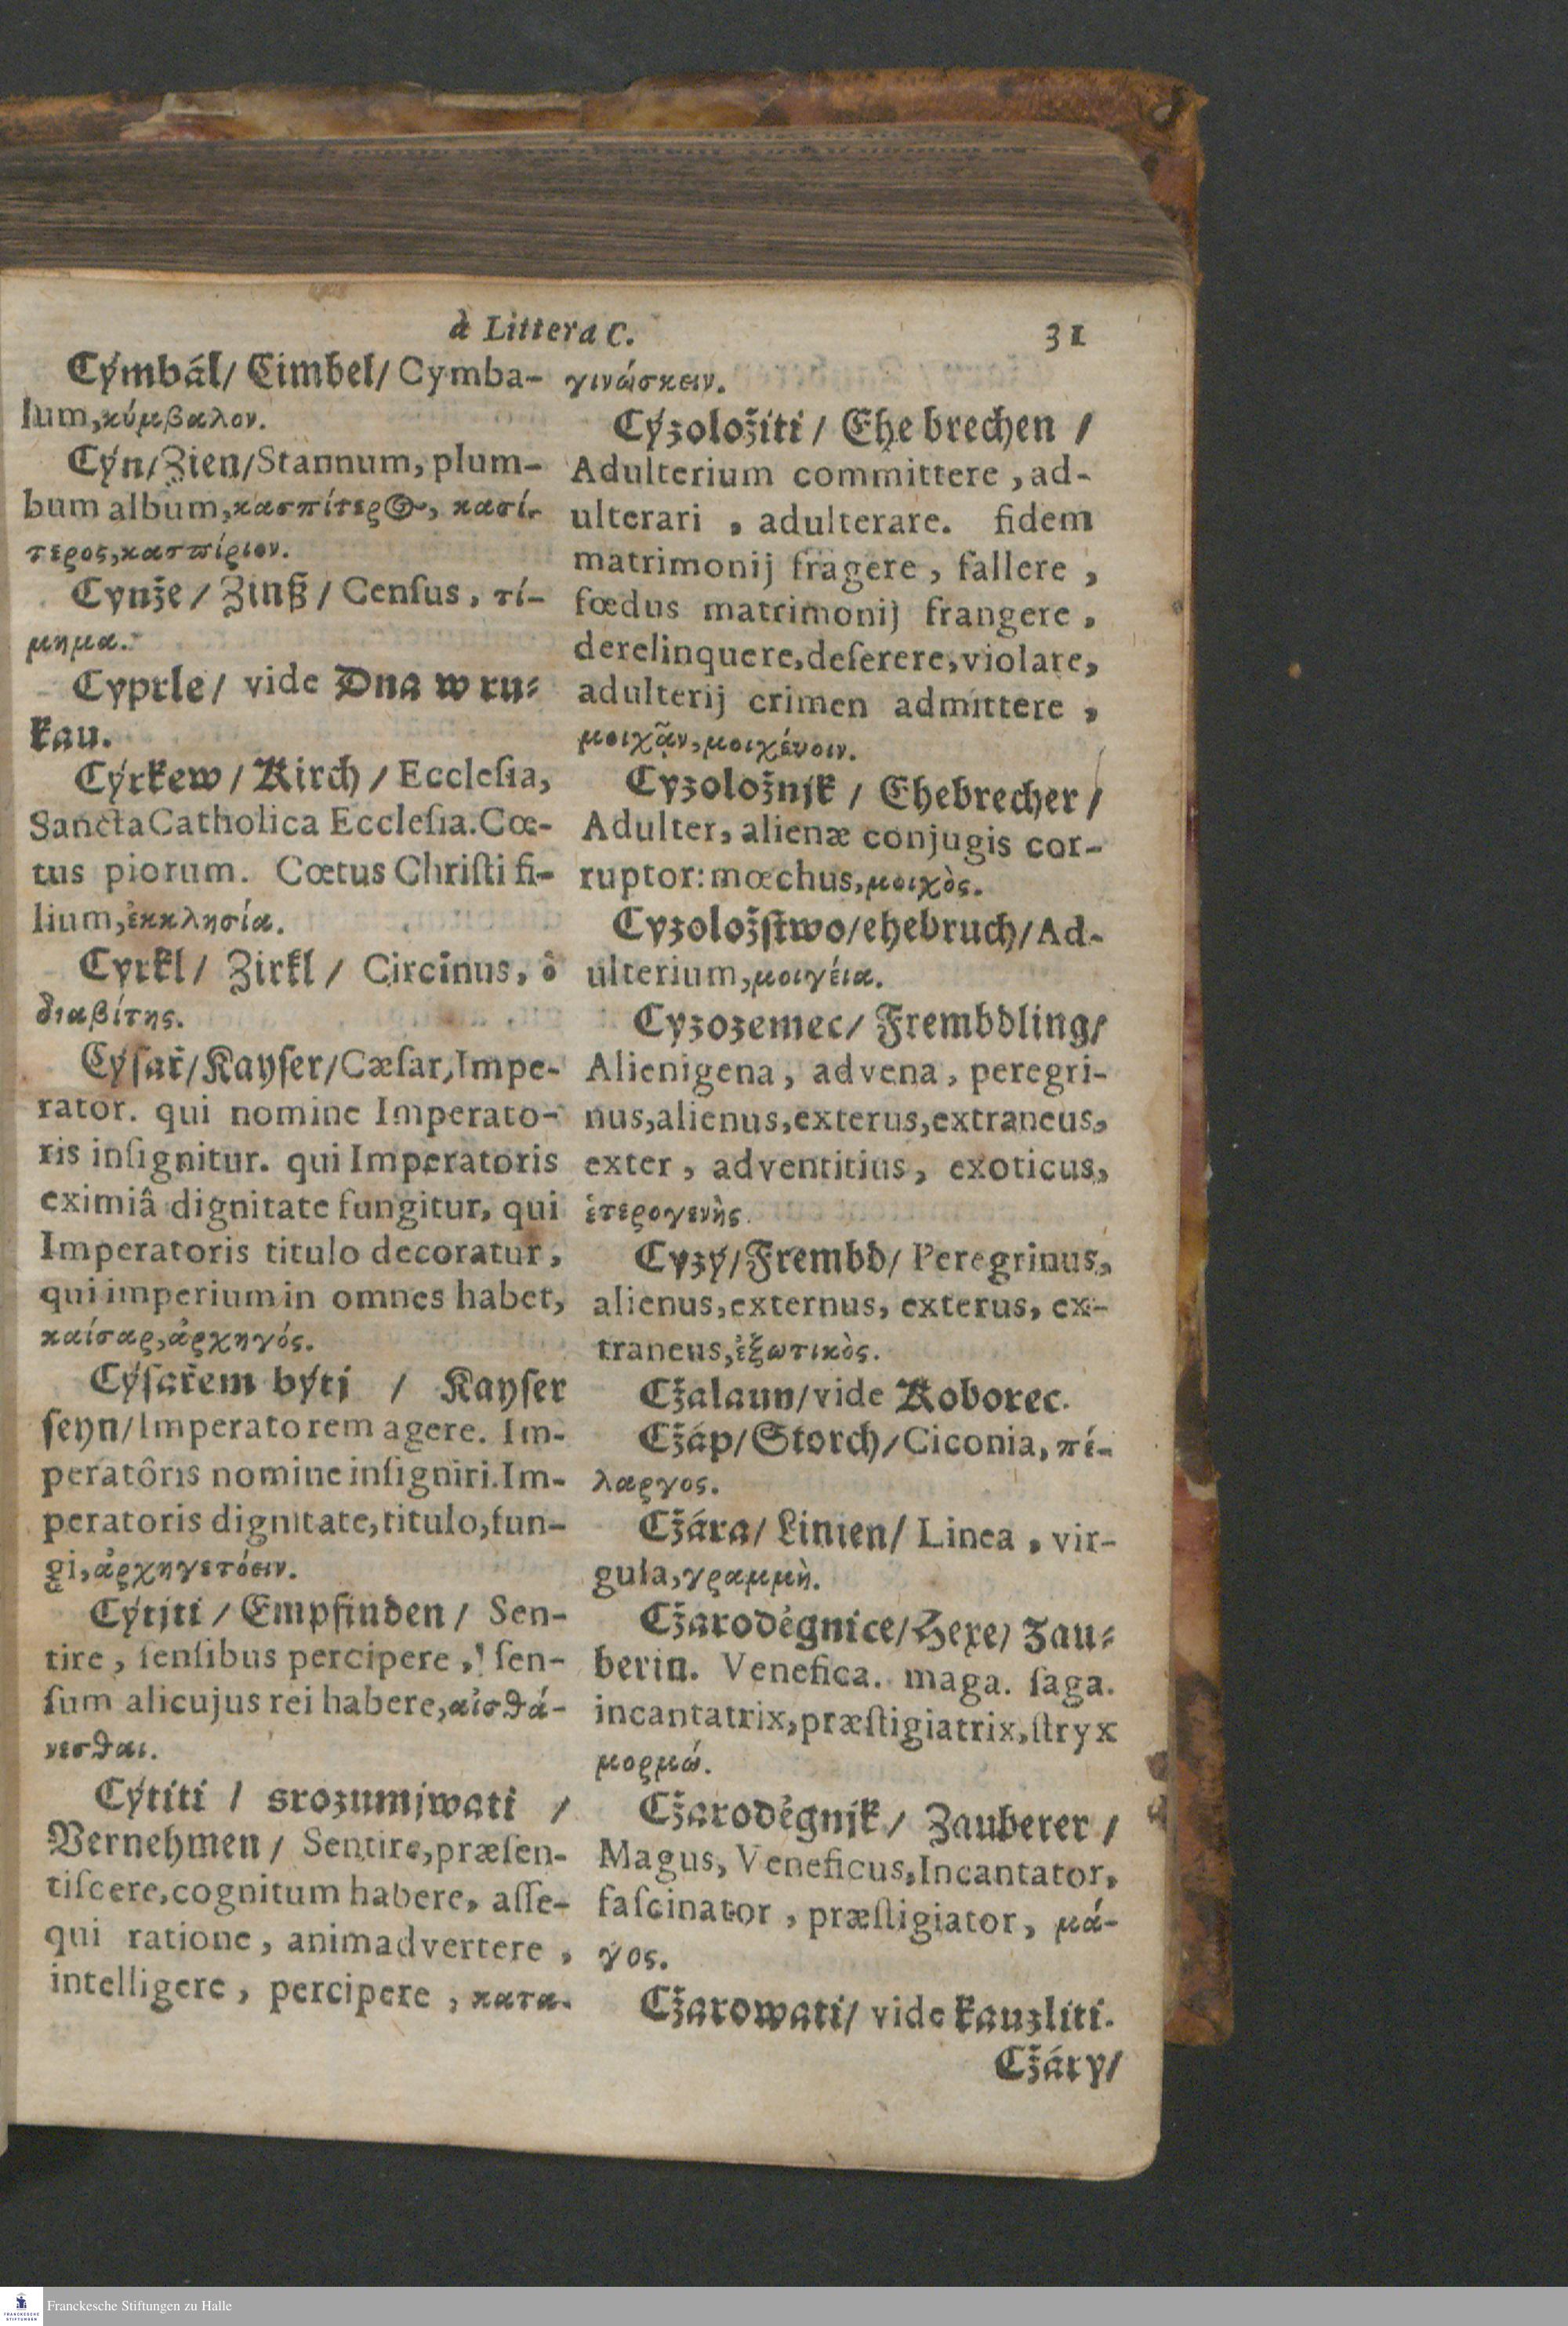 à Littera C. 31
Cýmbál/ Cimbel/ Cymba-
lum,κύμβαλον.
Cýn/Zien/Stannum, plum-
bum album,κασπίτερος, κασί-
τερος,κασπίριον.
Cynže/ Zinß/ Cenſus, τί-
μημα.
Cyprle/ vide Dna w ru-
kau.
Cýrkew/ Kirch/ Eccleſia,
Sancta Catholica Eccleſia. Cœ-
tus piorum. Cœtus Chriſti fi-
lium,ἐκκλησία.
Cyrkl/ Zirkl/ Circinus, ὁ
διαβίτης.
Cýſař/Kayſer/Cæſar,Impe-
rator. qui nomine Imperato-
ris inſignitur. qui Imperatoris
eximiâ dignitate fungitur, qui
Imperatoris titulo decoratur,
qui imperium in omnes habet,
καίσαρ,ἀρχηγός.
Cýſařem býti / Kayſer
ſeyn/Imperatorem agere. Im-
peratôris nomine inſigniri. Im-
peratoris dignitate,titulo,fun-
gi,ἀρχηγετόειν.
Cýtjti/ Empfinden/ Sen-
tire, ſenſibus percipere, ſen-
ſum alicujus rei habere,αἰσθά-
νεσθαι.
Cýtiti / srozumjwati /
Vernehmen/ Sentire,præſen-
tiſcere,cognitum habere, aſſe-
qui ratione, animadvertere,
intelligere, percipere, κατα-
γινώσκειν.
Cýzoložiti/ Ehe brechen /
Adulterium committere, ad-
ulterari, adulterare. fidem
matrimonij frāgere, fallere,
fœdus matrimonij frangere,
derelinquere,deſerere,violare,
adulterij crimen admittere,
μοιχᾶν,μοιχένοιν.
Cyzoložnjk / Ehebrecher/
Adulter, alienæ conjugis cor-
ruptor: mœchus,μοιχὸς.
Cyzoložſtwo/ehebruch/Ad-
ulterium,μοιγέια.
Cyzozemec/ Frembdling/
Alienigena, advena, peregri-
nus,alienus,exterus,extraneus,
exter, adventitius, exoticus,
ἑτερογενὴς.
Cyzý/Frembd/ Peregrinus,
alienus,externus, exterus, ex-
traneus,ἐξωτικὸς.
Cžalaun/vide Koborec.
Cžáp/Storch/Ciconia, πέ-
λαργος.
Cžára/ Linien/ Linea, vir-
gula,γραμμὴ.
Cžarodėgnice/Hexe/ Zau-
berin. Venefica. maga. ſaga.
incantatrix,præſtigiatrix,ſtryx
μορμώ.
Cžarodėgnjk/ Zauberer/
Magus, Veneficus,Incantator,
faſcinator, præſtigiator, μά-
γος.
Cžarowati/ vide kauzliti.
Cžáry/
Franckesche Stiftungen zu Halle